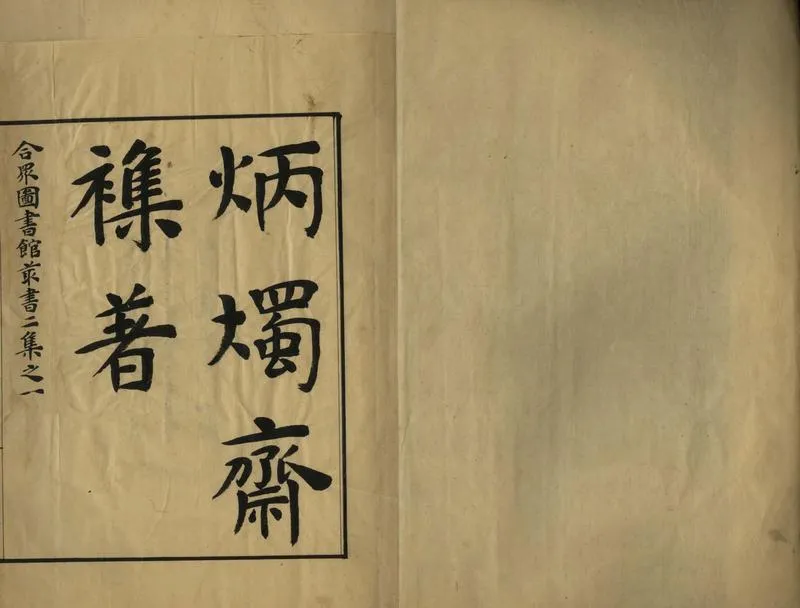 炳燭齋
襍著
合眾圖書館叢書二集之一